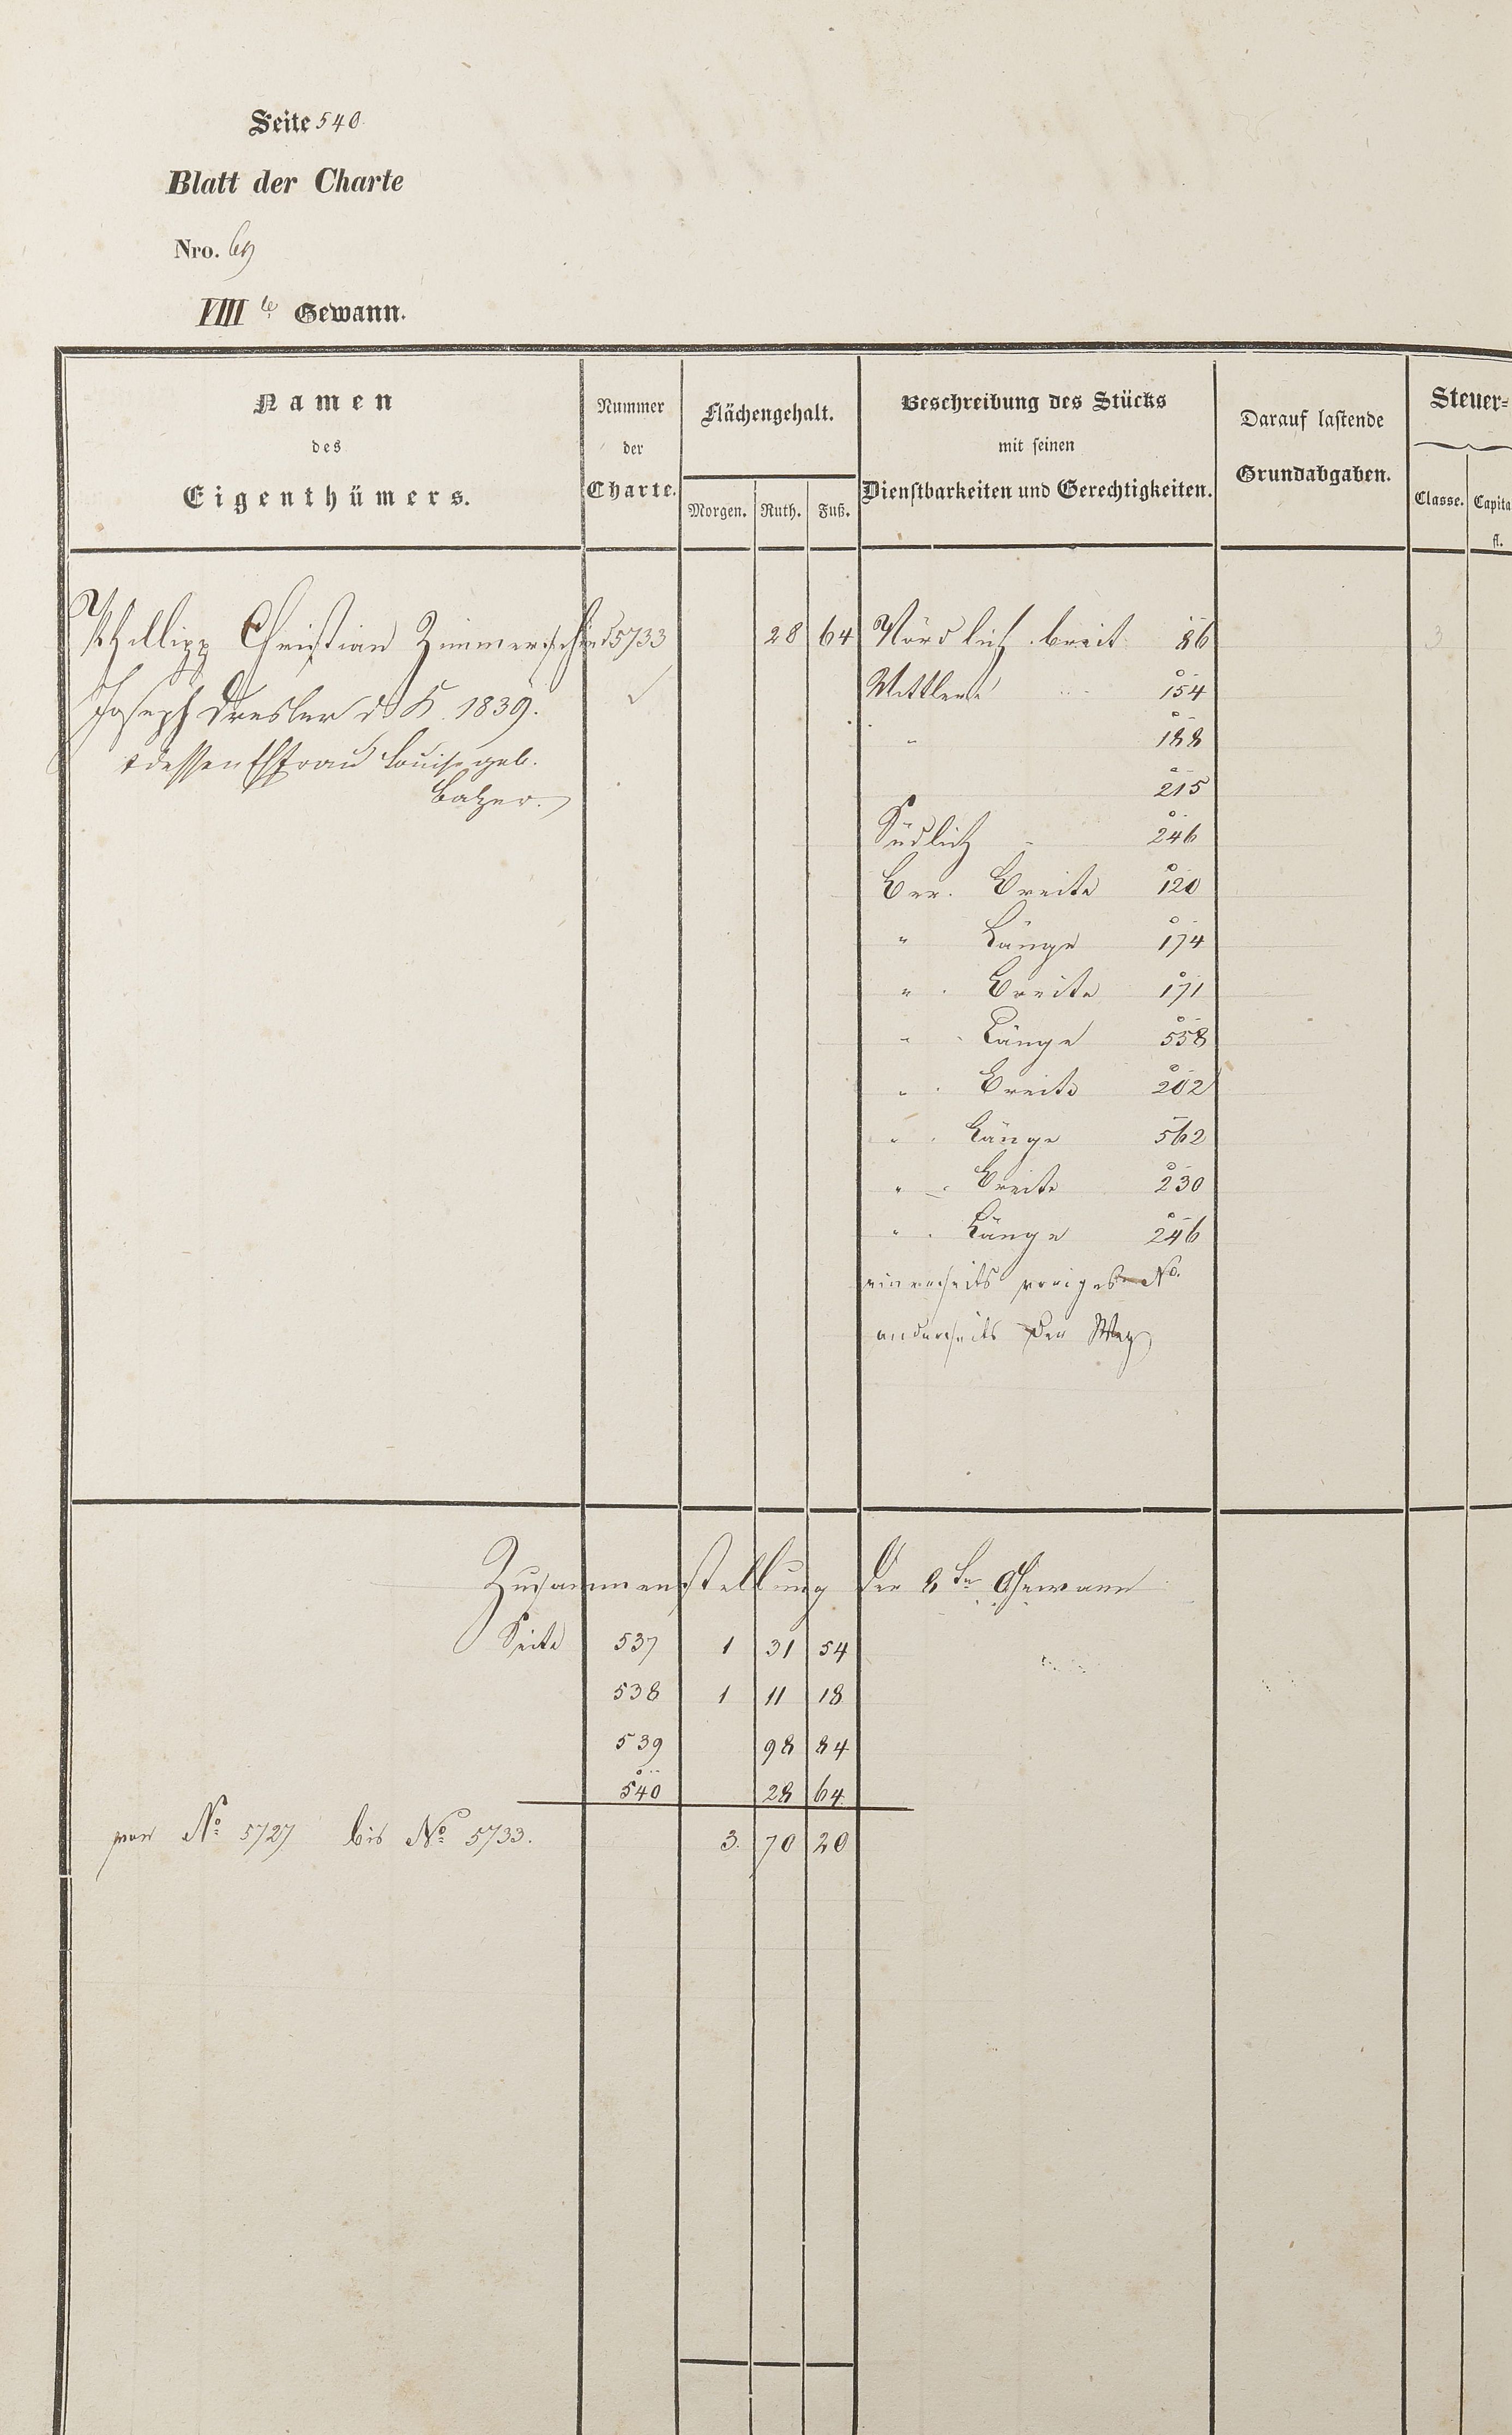 Seite 540
Blatt der Charte
Nro. 69
VIII te Gewann.
Namen
des
Eigenthümers.
Nummer
der
Charte.
Flächengehalt.
Morgen. Ruth. Fuß.
Beschreibung des Stücks
mit seinen
Dienstbarkeiten und Gerechtigkeiten.
Darauf lastende
Grundabgaben.
Steuer=
Classe. Capita
fl.
Phillipp Christian Zimmerschied 5733 28 64 Nördlich breit 86 3
Joseph Dresler d. K. 1839. ✓ Mittlere 154
" 188
& dessen Ehfrau Louise geb.
Balzer.
215
Südlich - 246
Ber. Breite 120
" Länge 174
" Breite 171
" Länge 558
" Breite 202
" Länge 562
" Breite 230
" Länge 246
einerseits voriges No.
anderseits den Weg
Zusammenstellung der 8ten Gewann
Seite 537 1 31 54
538 1 11 18
539 98 84
540 28 64
von No 5727 bis No 5733. 3. 70 20